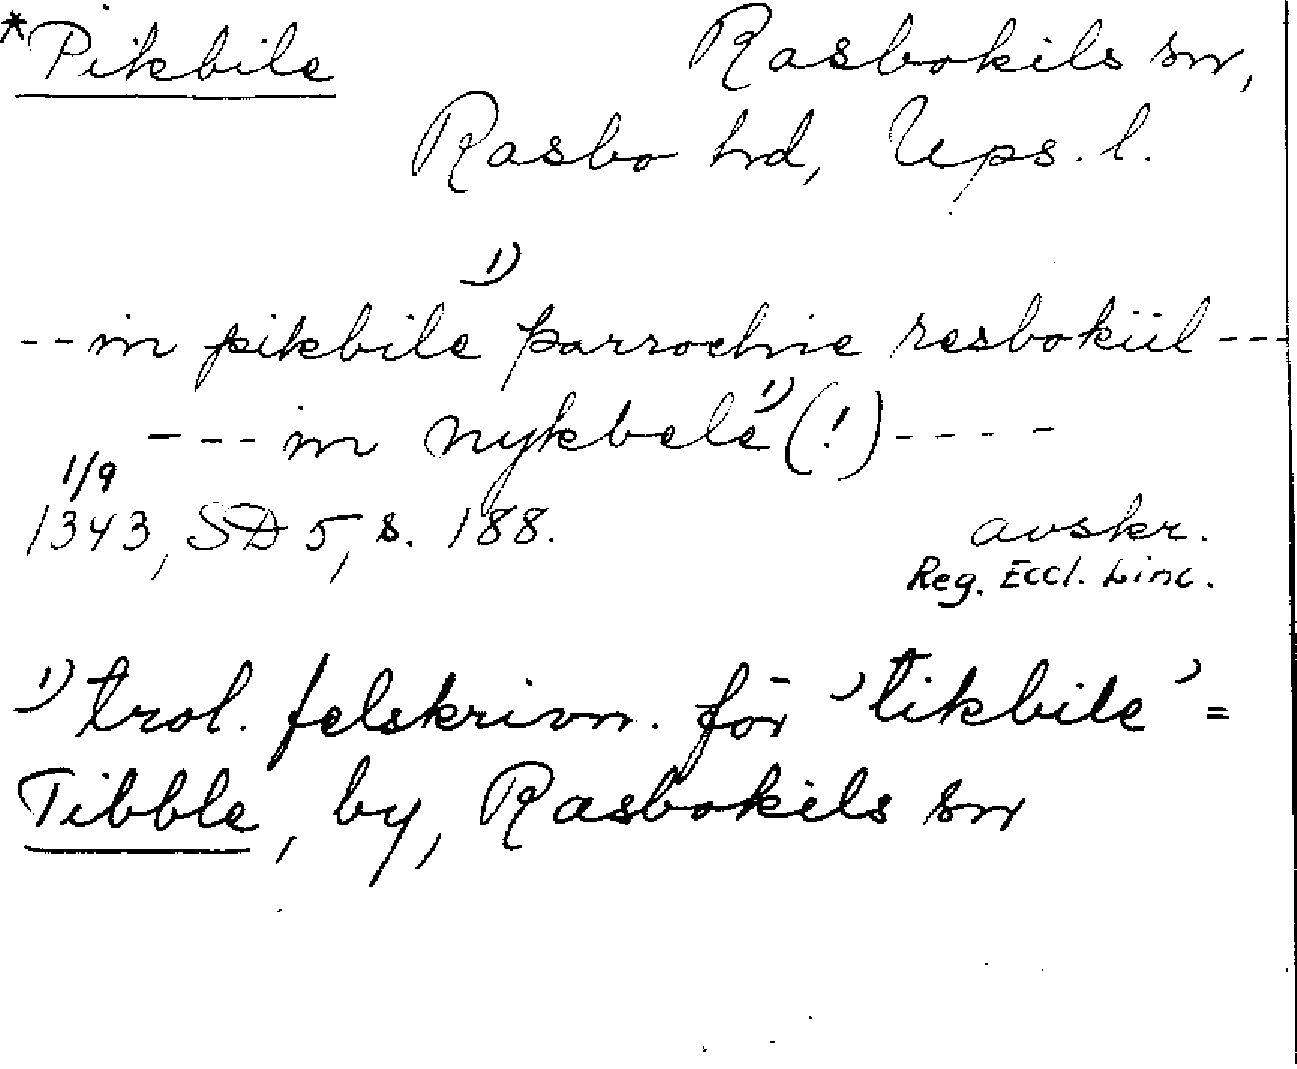 *Pikbile Rasbokils sn,
Rasbo hd, Ups. l.
--in pikbile 1) parrochie resbokiil---
---in nykbele 1) (!)----
1/9
1343, SD 5, s. 188. avskr.
Reg. Eccl. Linc.
1) trol. felskrivn. för 'tikbile' =
Tibble, by, Rasbokils sn